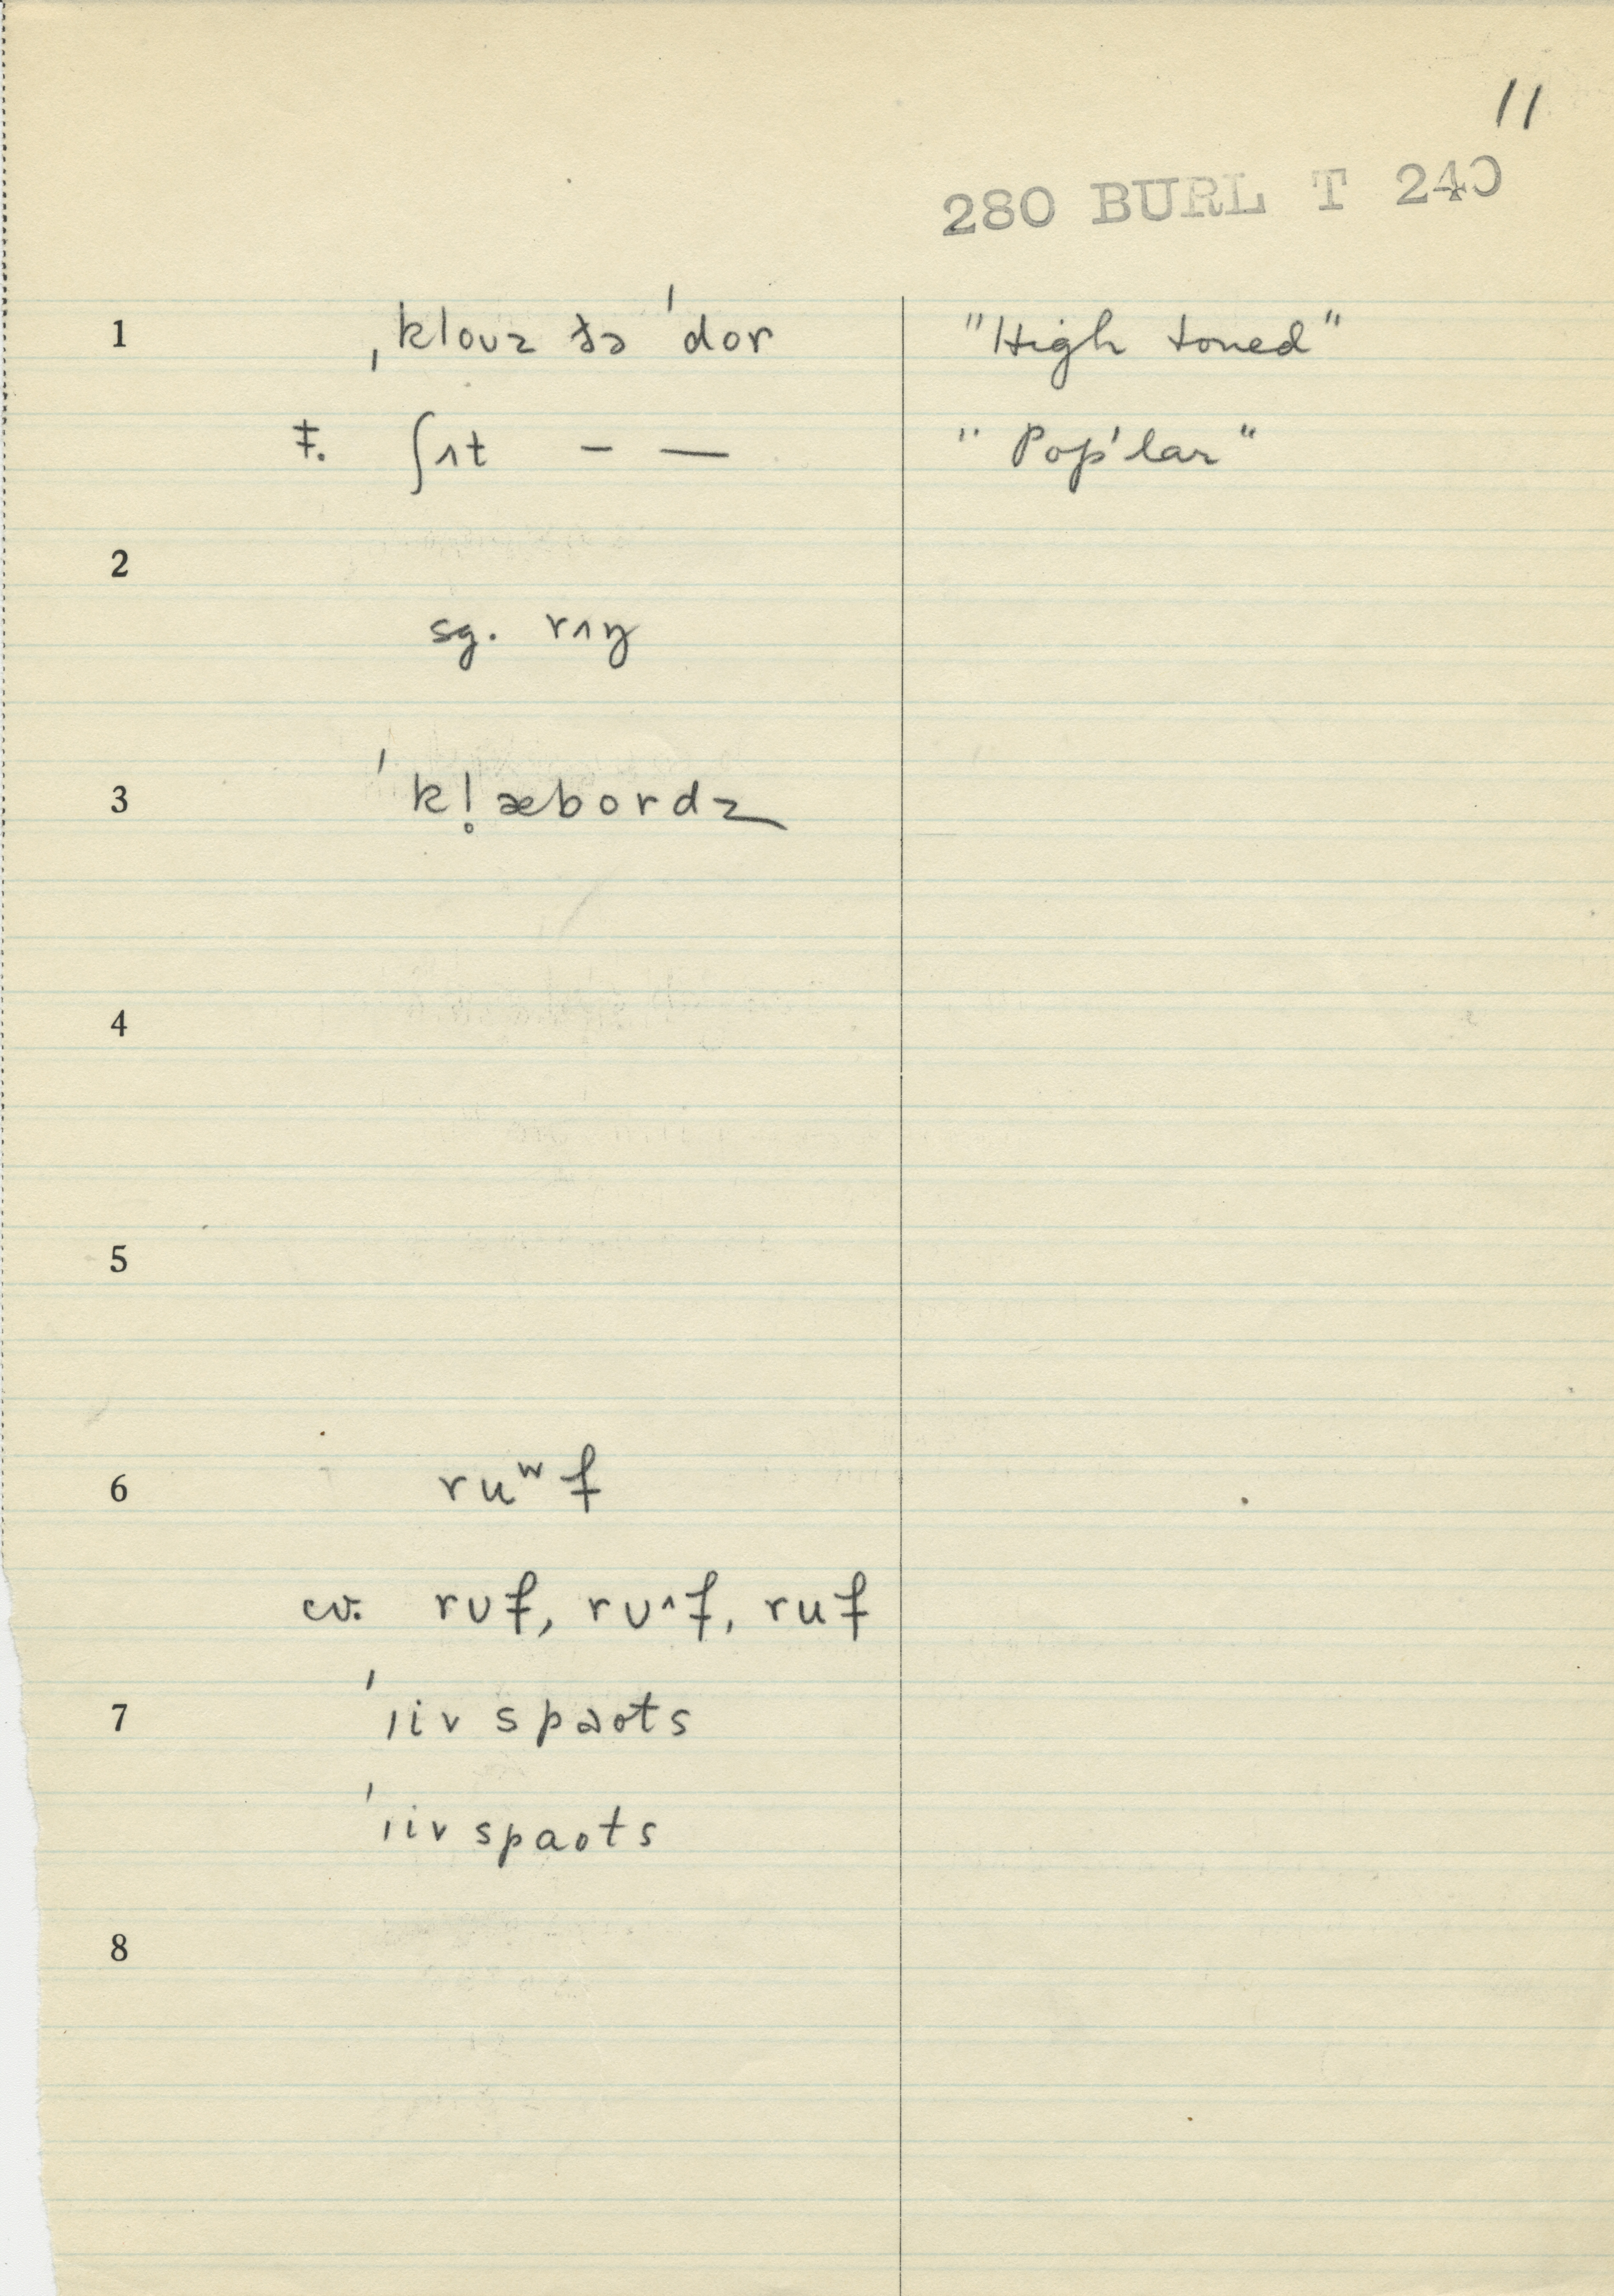 11
280 BURL T 240
1 ˌkloʊz ðə ˈdor "High toned"
f. ʃʌt – — "Pop'lar"
2
sg. rʌŋ
3 ˈkl̥æbordz
4
5
6 ruʷf
cv. rʊf, rʊ^f, ruf
7 ˈɪiv spaots
ˈɪiv spaots
8